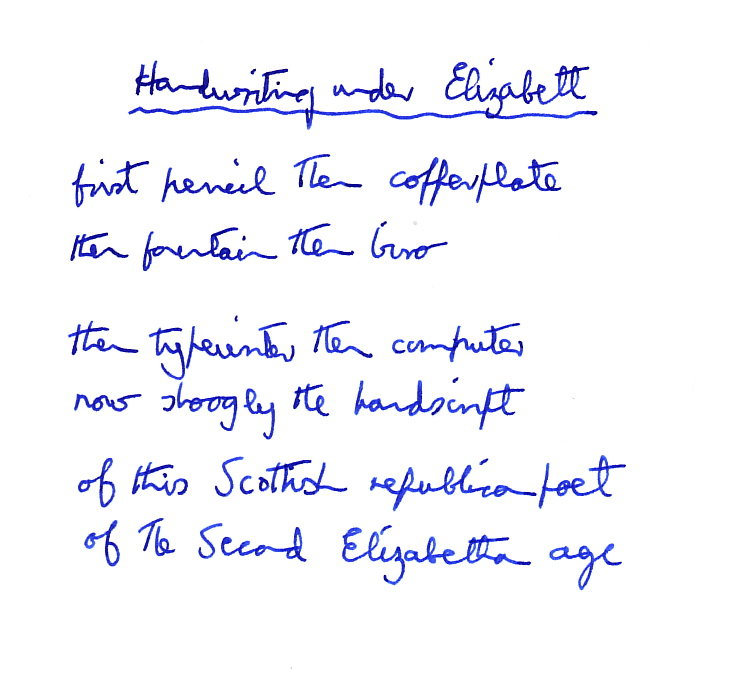 Handwriting under Elizabeth
first pencil then copperplate
then fountain then biro
then typewriter then computer
now shoogly the handscript
of this Scottish republican poet
of the Second Elizabethan age